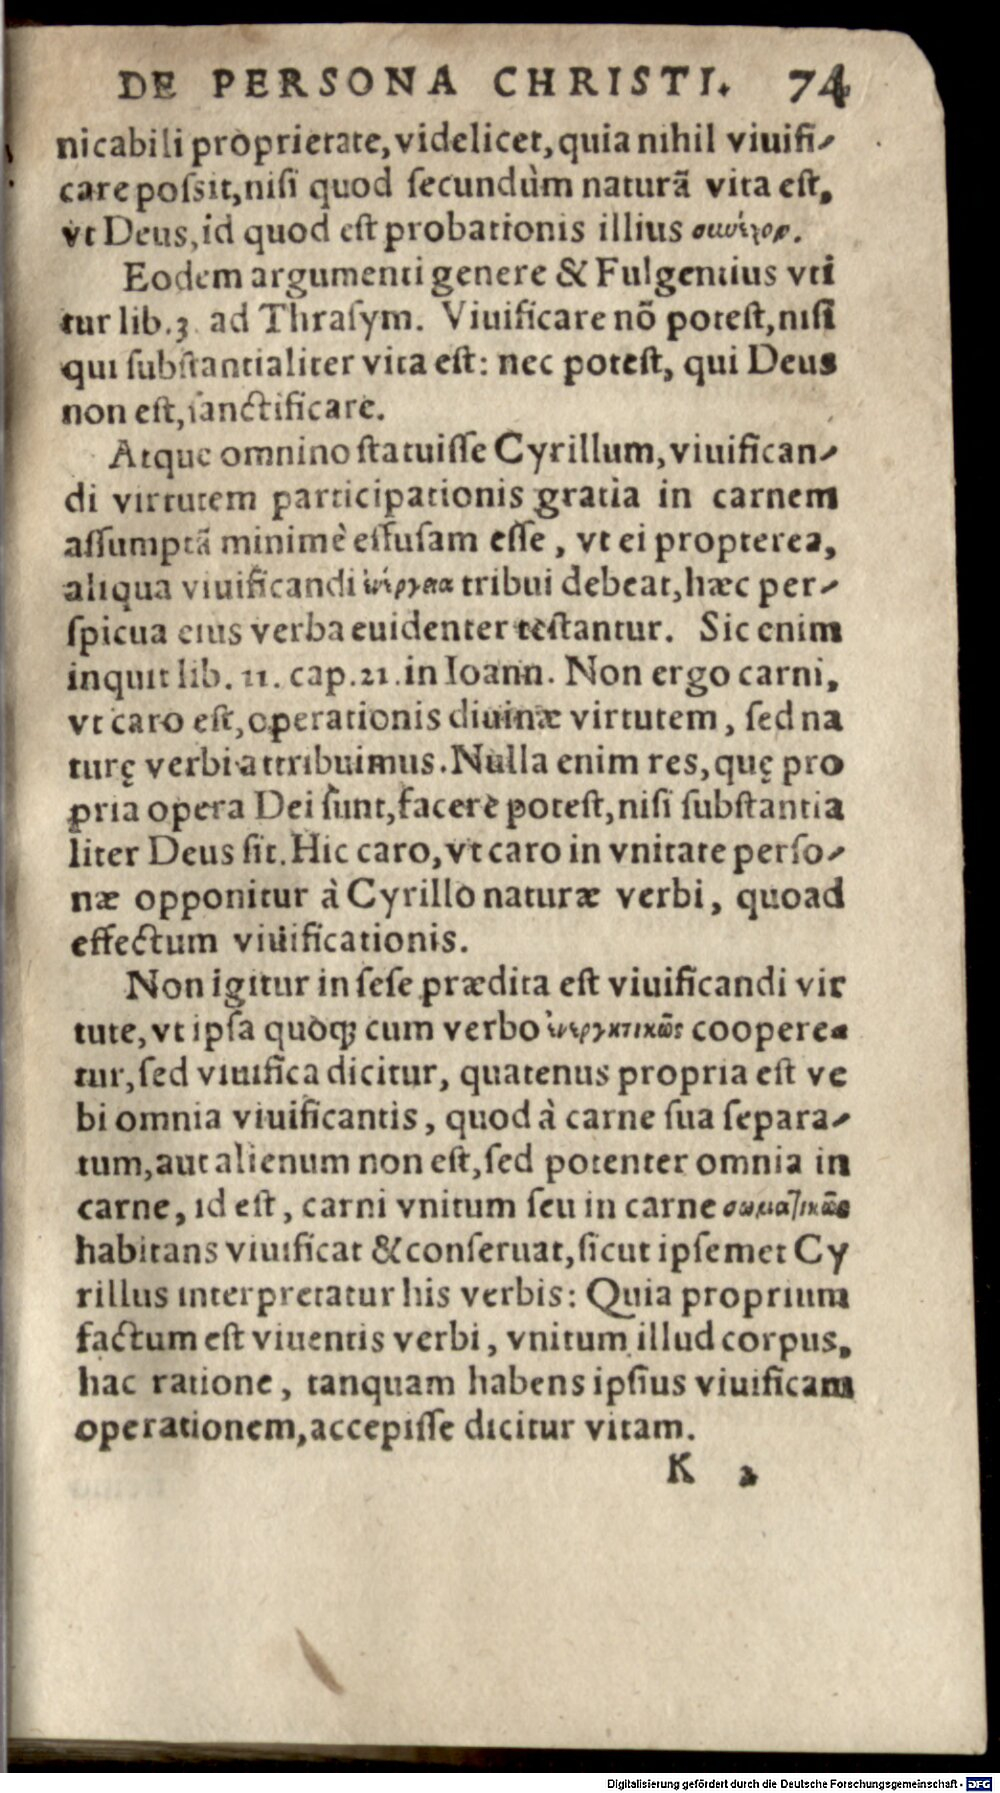 DE PERSONA CHRISTI. 74
nicabili proprietate, videlicet, quia nihil viuifi-
care possit, nisi quod secundùm naturã vita est,
vt Deus, id quod est probationis illius
Eodem argumenti genere & Fulgentius vti
tur lib.3. ad Thrasym. Viuificare nõ potest, nisi
qui substantialiter vita est: nec potest, qui Deus
non est, sanctificare.
Atque omnino statuisse Cyrillum, viuifican-
di virtutem participationis gratia in carnem
assumptã minimè effusam esse, vt ei propterea,
aliqua viuificandi tribui debeat, hæc per-
spicua eius verba euidenter testantur. Sic enim
inquit lib. 11. cap. 21. in Ioann. Non ergo carni,
vt caro est, operationis diuinæ virtutem, sed na
turę verbi attribuimus. Nulla enim res, quę pro
pria opera Dei sunt, facere potest, nisi substantia
liter Deus sit. Hic caro, vt caro in vnitate perso-
næ opponitur à Cyrillo naturæ verbi, quoad
effectum viuificationis.
Non igitur in sese prædita est viuificandi vir
tute, vt ipsa quoq; cum verbo ἐνεργητικῶς coopere-
tur, sed viuifica dicitur, quatenus propria est ve
bi omnia viuificantis, quod à carne sua separa-
tum, aut alienum non est, sed potenter omnia in
carne, id est, carni vnitum seu in carne σωματικῶς
habitans viuificat & conseruat, sicut ipsemet Cy
rillus interpretatur his verbis: Quia proprium
factum est viuentis verbi, vnitum illud corpus,
hac ratione, tanquam habens ipsius viuificam
operationem, accepisse dicitur vitam.
K 2
Digitalisierung gefördert durch die Deutsche Forschungsgemeinschaft - DFG